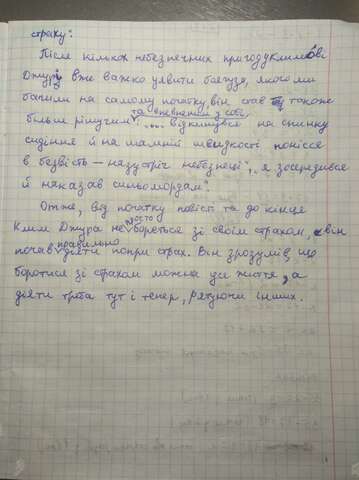 страху.
Після кількох небезпечних пригод у Климові
Джурі вже важко уявити боягуза, якого ми
бачили на самому початку, він став також
більш рішучим та впевненим у собі: "... відкинувся на спинку
сидіння й на шаленій швидкості понісся
в безвість – назустріч небезпеці", "я зосередився
й наказав сильмордам".
Отже, від початку повісті та до кінця
Клим Джура не просто бореться зі своїм страхом, він
почав правильно діяти попри страх. Він зрозумів, що
боротися зі страхом можна усе життя, а
діяти треба тут і тепер, рятуючи інших.